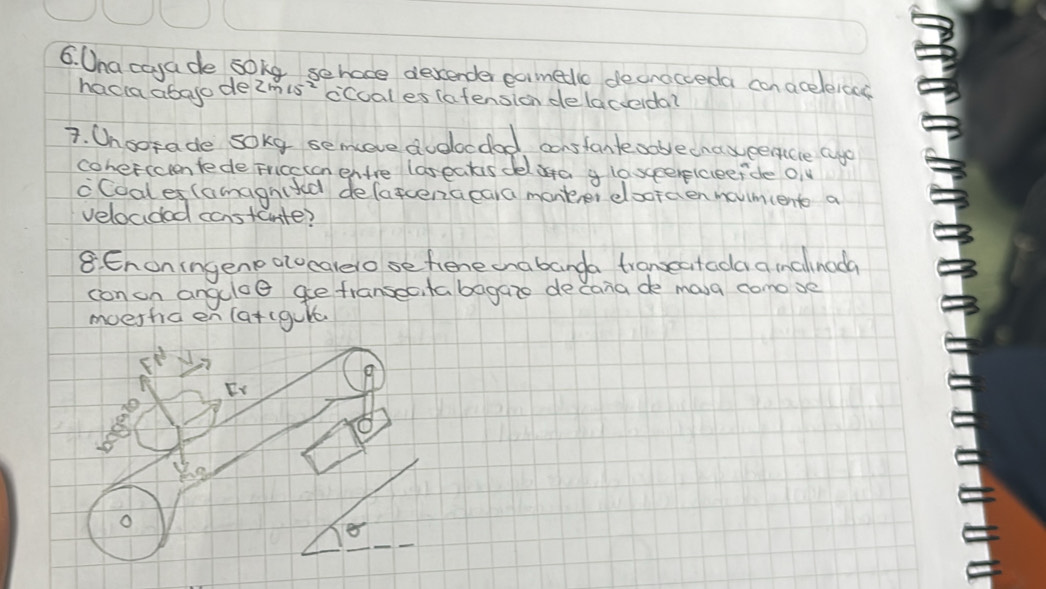 6. Una caja de 50kg se hace descender por medio de una cuerda con aceleracc
hacia abajo de 2m/s² ¿Cual es la tension de la cuerda?
7. Un sofa de 50kg se mueve a velocidad constante sobre una superficie cuyo
coheficciente de Friccion entre las patas del sofa y la superficie es de 0,4
¿Cual es la magnitud de la fuerza para mantener el sofa en movimiento a
velocidad constante?
8. En un ingenio azucarero se tiene una banda transportada a inclinada
con un angulo θ que transporta bagazo de caña de masa como se
muestra en la figura.
FN V
Fr
bagazo
θ